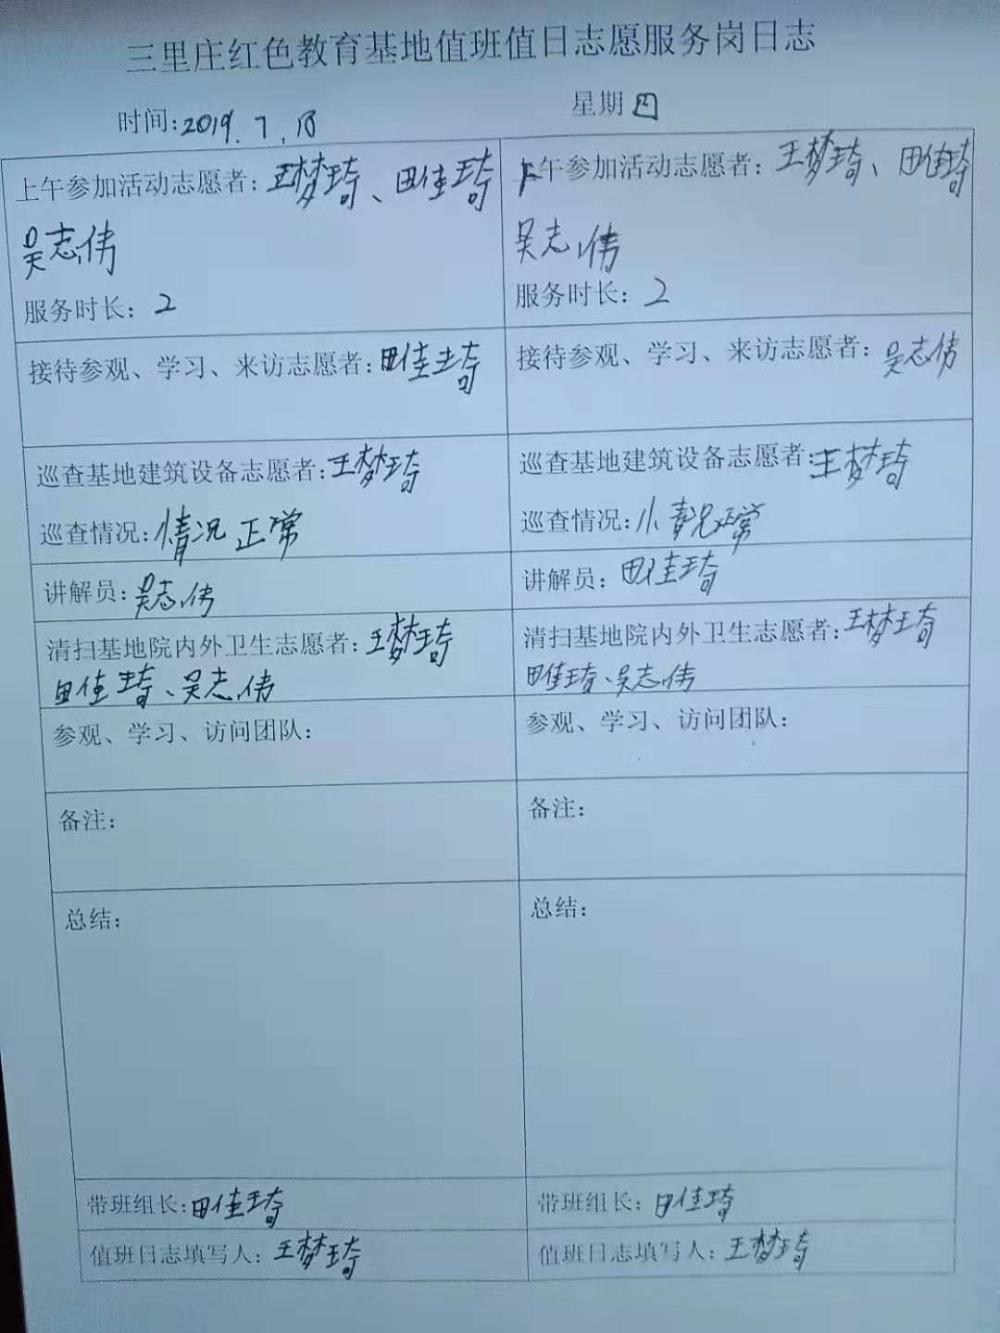 三里庄红色教育基地值班值日志愿服务岗日志
时间:2019.7.18
星期 四
上午参加活动志愿者：王梦琦、田佳琦
吴志伟
服务时长：2
下午参加活动志愿者：王梦琦、田佳琦
吴志伟
服务时长：2
接待参观、学习、来访志愿者:田佳琦
接待参观、学习、来访志愿者：吴志伟
巡查基地建筑设备志愿者:王梦琦
巡查情况:情况正常
巡查基地建筑设备志愿者:王梦琦
巡查情况:情况正常
讲解员:吴志伟
讲解员：田佳琦
清扫基地院内外卫生志愿者:王梦琦
田佳琦、吴志伟
清扫基地院内外卫生志愿者:王梦琦
田佳琦、吴志伟
参观、学习、访问团队：
参观、学习、访问团队：
备注：
备注：
总结：
总结：
带班组长:田佳琦
带班组长：田佳琦
值班日志填写人：王梦琦
值班日志填写人：王梦琦